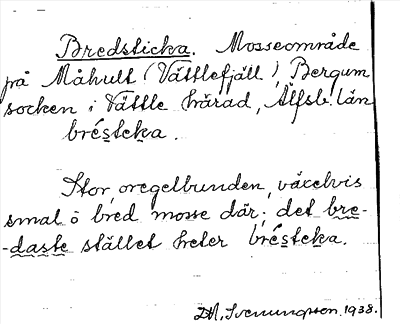 Bredsticka. Mosseområde
på Måhult (Vättlefjäll), Bergum
socken i Vättle härad, Älfsb. län
bréstcka.
Stor, oregelbunden, växelvis
smal o bred mosse där; det bre-
-daste stället heter bréstcka.
Svenungsson. 1938.